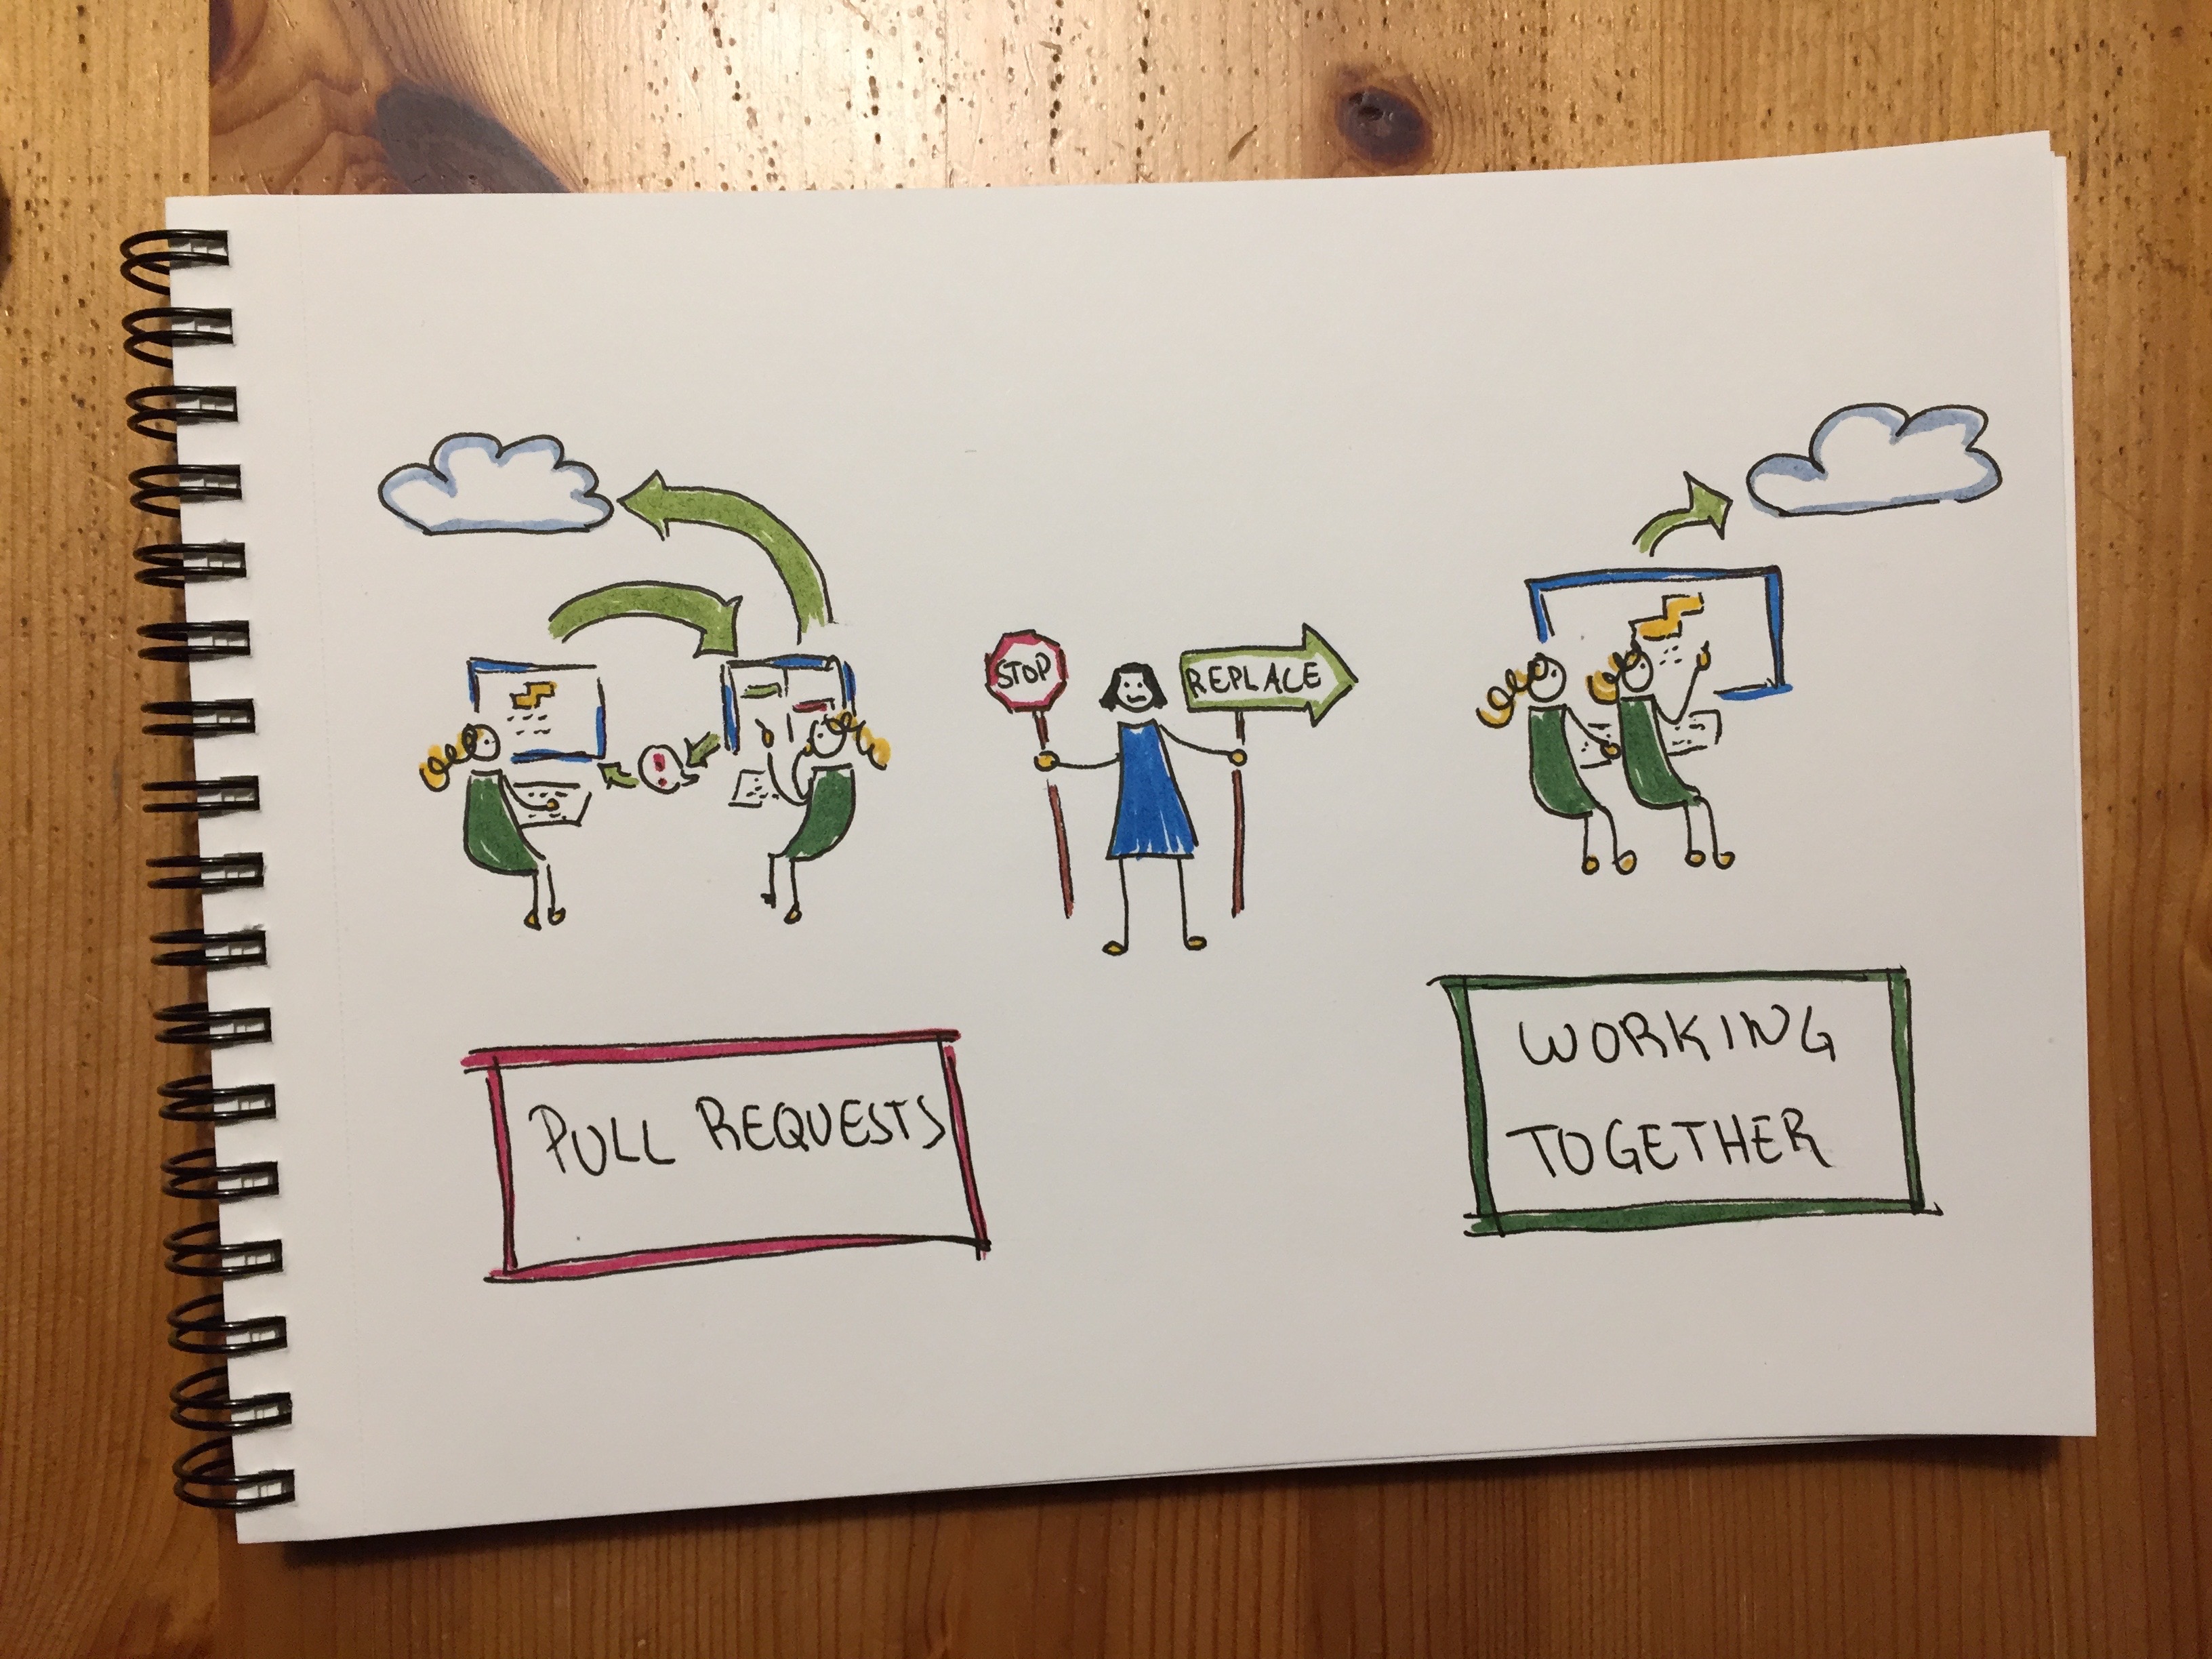 STOP
REPLACE
PULL REQUESTS
WORKING
TOGETHER